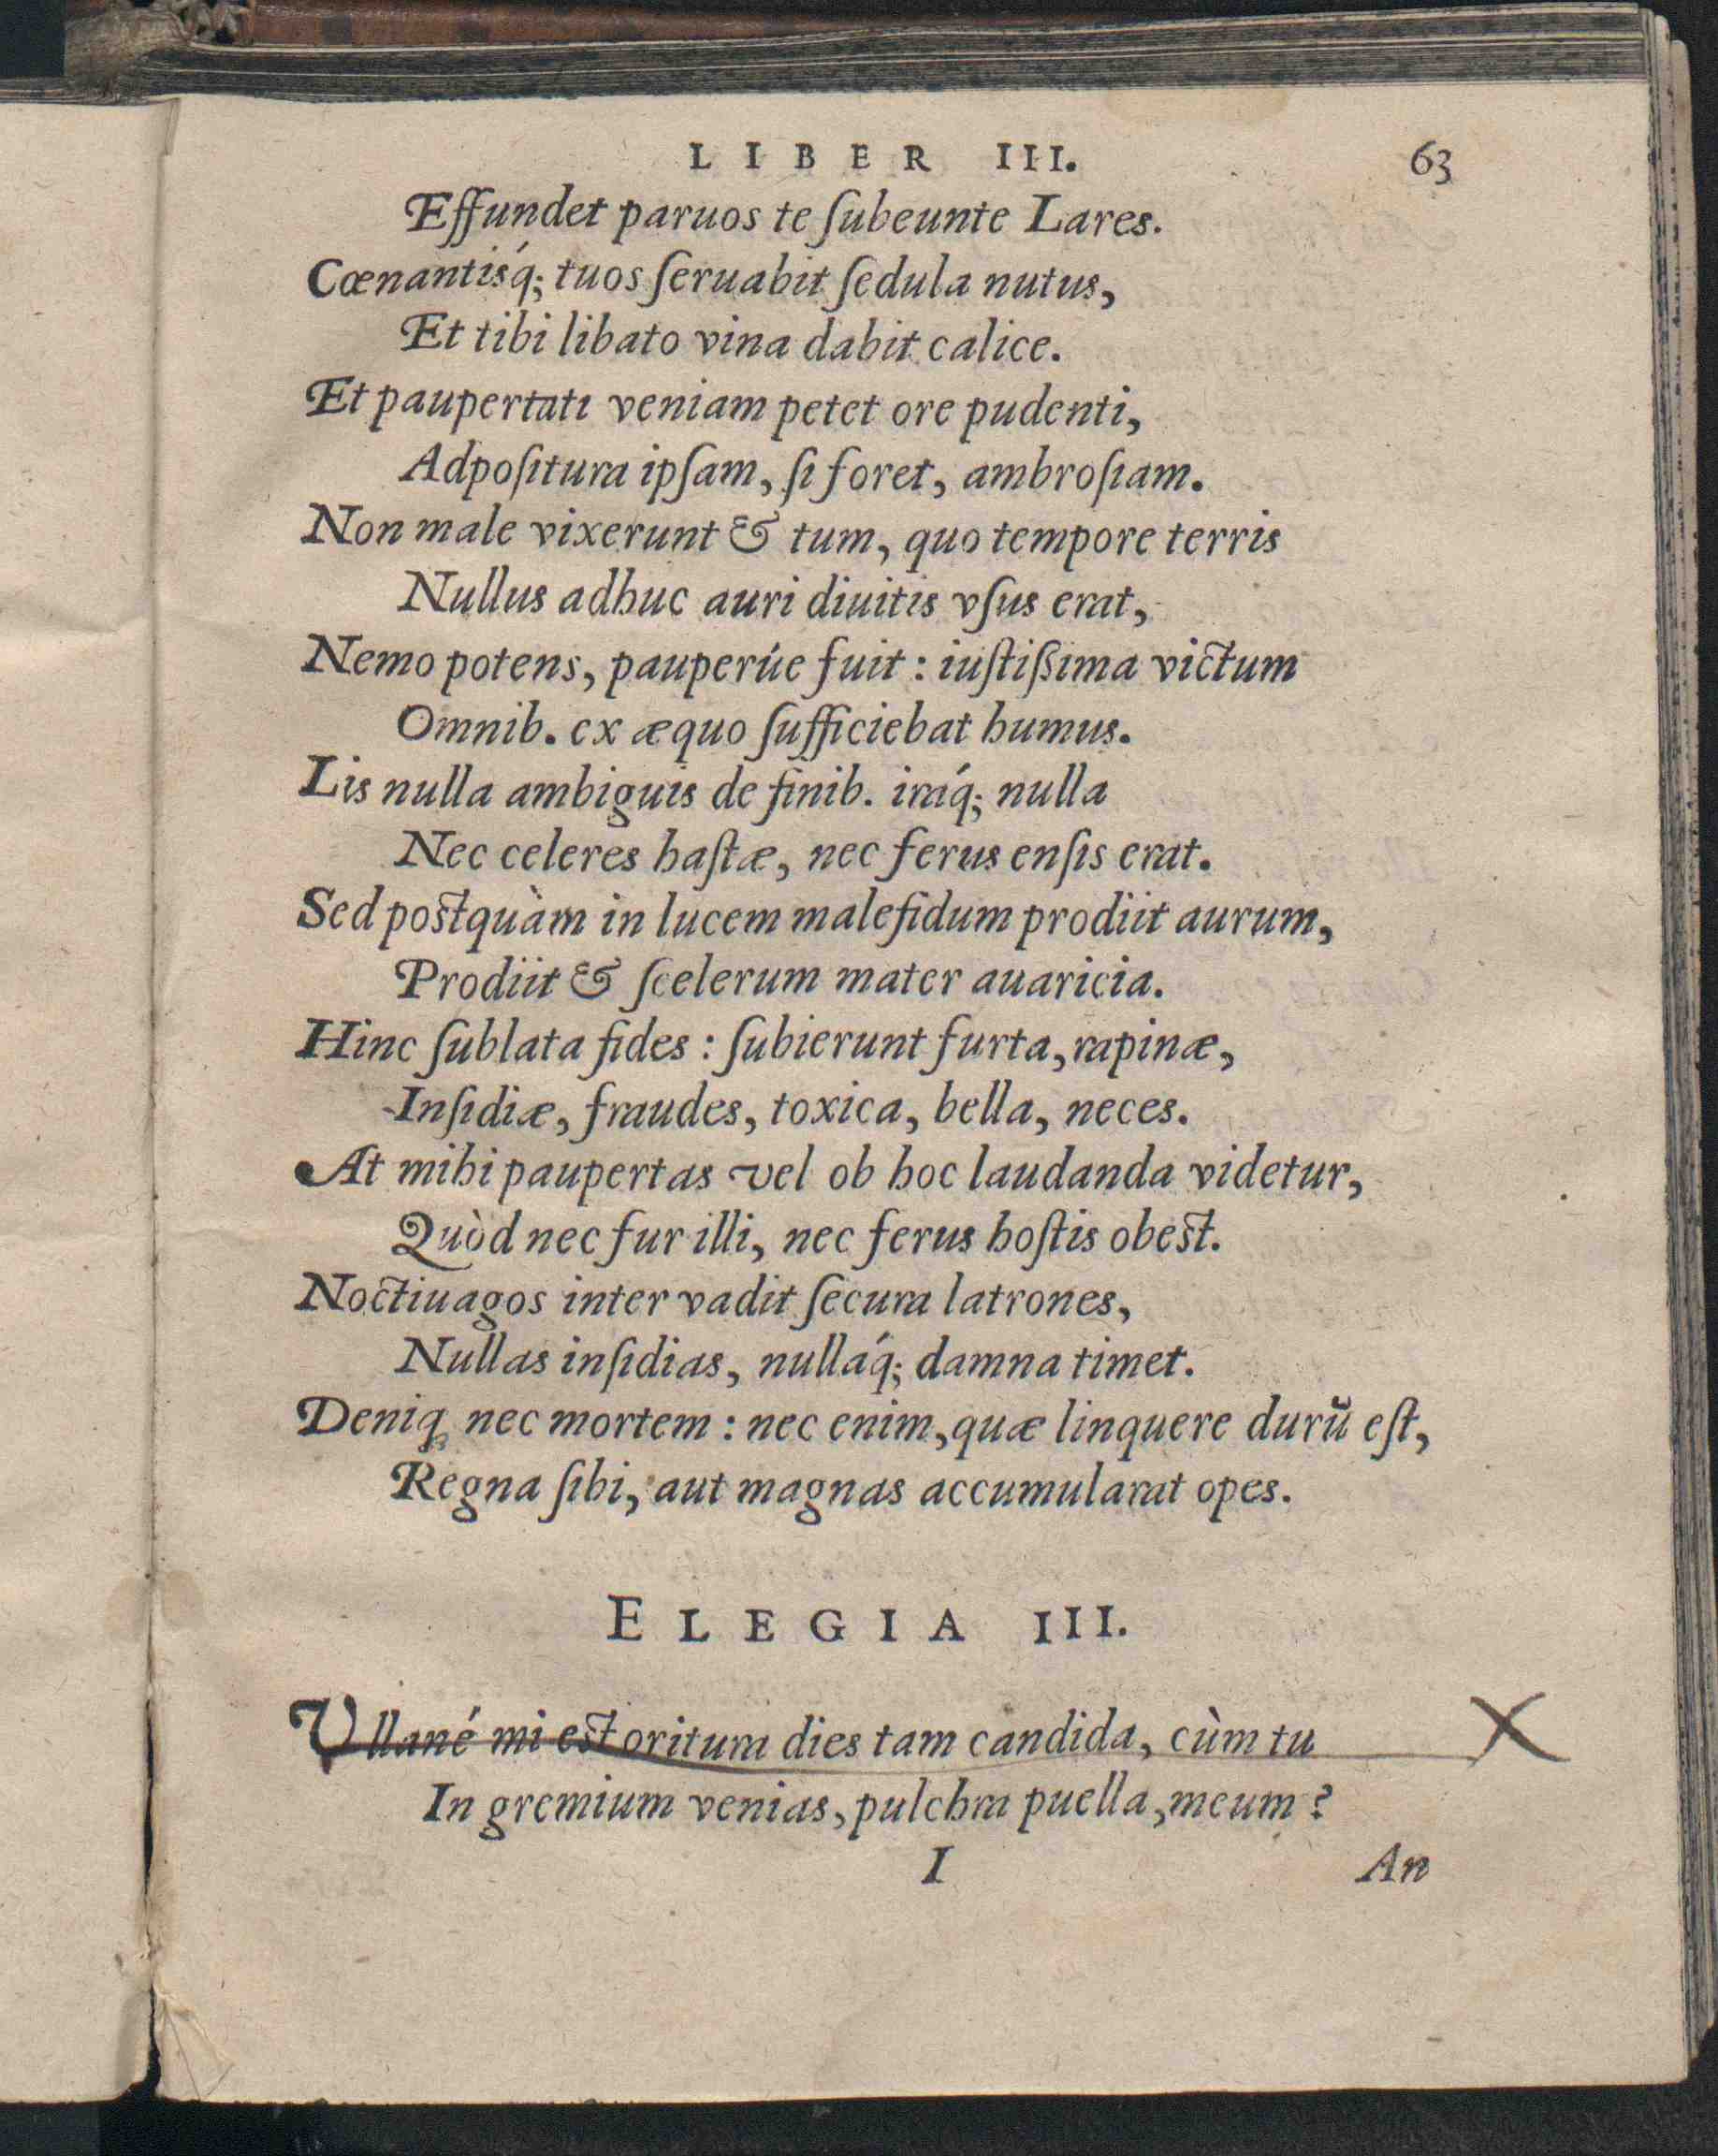 LIBER III. 63
Effundet paruos te ſubeunte Lares.
Cœnantisq́; tuos ſeruabit ſedula nutus,
Et tibi libato vina dabit calice.
Et paupertati veniam petet ore pudenti,
Adpoſitura ipſam, ſi foret, ambroſiam.
Non male vixerunt & tum, quo tempore terris
Nullus adhuc auri diuitis vſus erat,
Nemo potens, pauperúe fuit: iuſtißima victum
Omnib. ex æquo ſufficiebat humus.
Lis nulla ambiguis de finib. iráq́; nulla
Nec celeres haſtæ, nec ferus enſis erat.
Sed postquàm in lucem malefidum prodiit aurum,
Prodiit & ſcelerum mater auaricia.
Hinc ſublata fides: ſubierunt furta, rapinæ,
Inſidiæ, fraudes, toxica, bella, neces.
At mihi paupertas vel ob hoc laudanda videtur,
Quòd nec fur illi, nec ferus hoſtis obest.
Noctiuagos inter vadit ſecura latrones,
Nullas inſidias, nulláq́; damna timet.
Deniq; nec mortem: nec enim, quæ linquere durũ eſt,
Regna ſibi, aut magnas accumularat opes.
ELEGIA III.
Vllané mi est oritura dies tam candida, cùm tu
In gremium venias, pulchra puella, meum?
I An